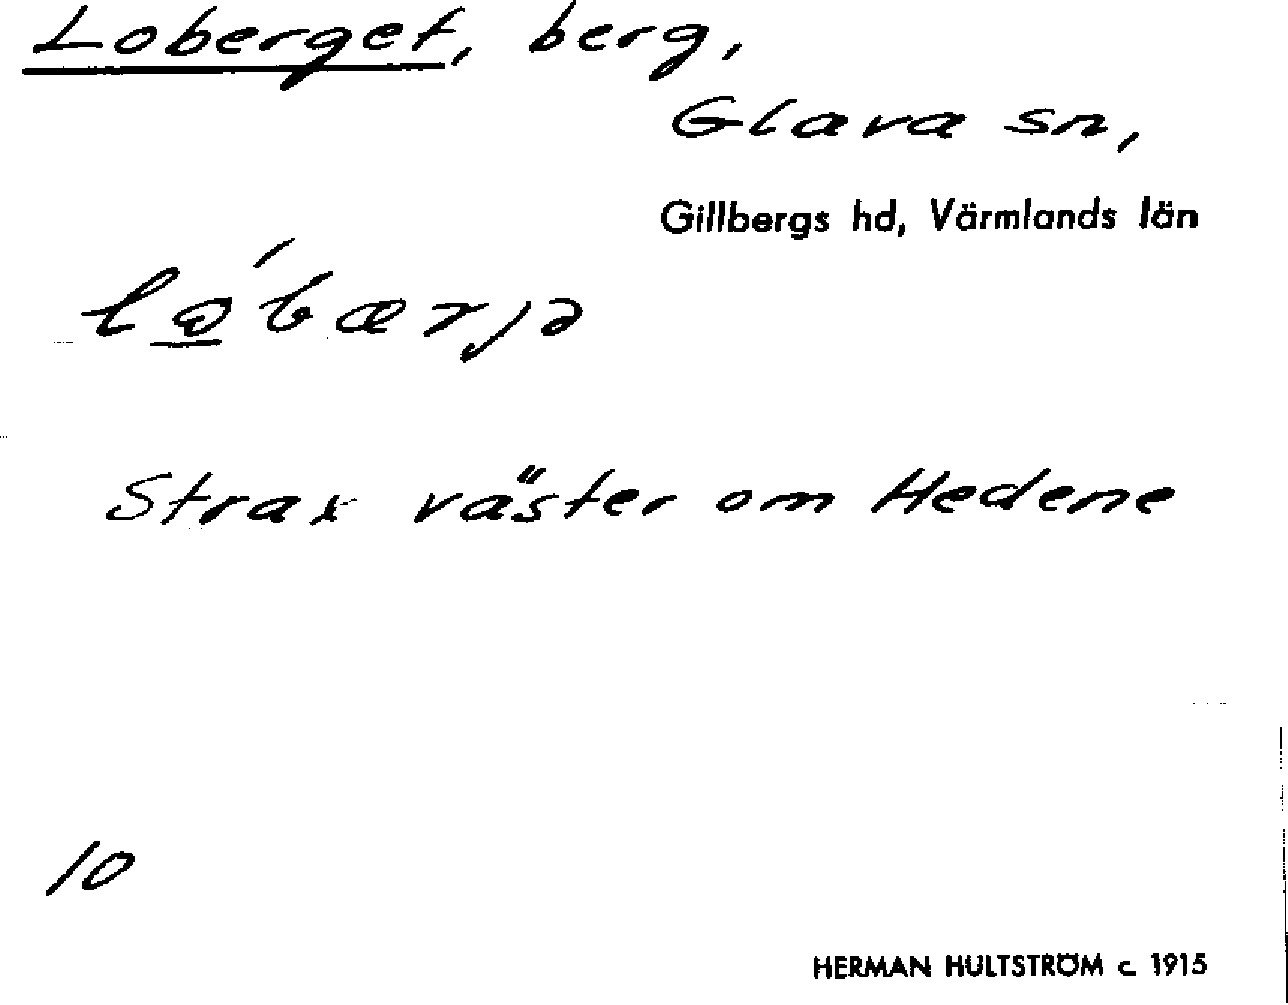 Loberget, berg,
Glava sn,
Gillbergs hd, Värmlands län
Strax väster om Hedene
10
HERMAN HULTSTRÖM c. 1915